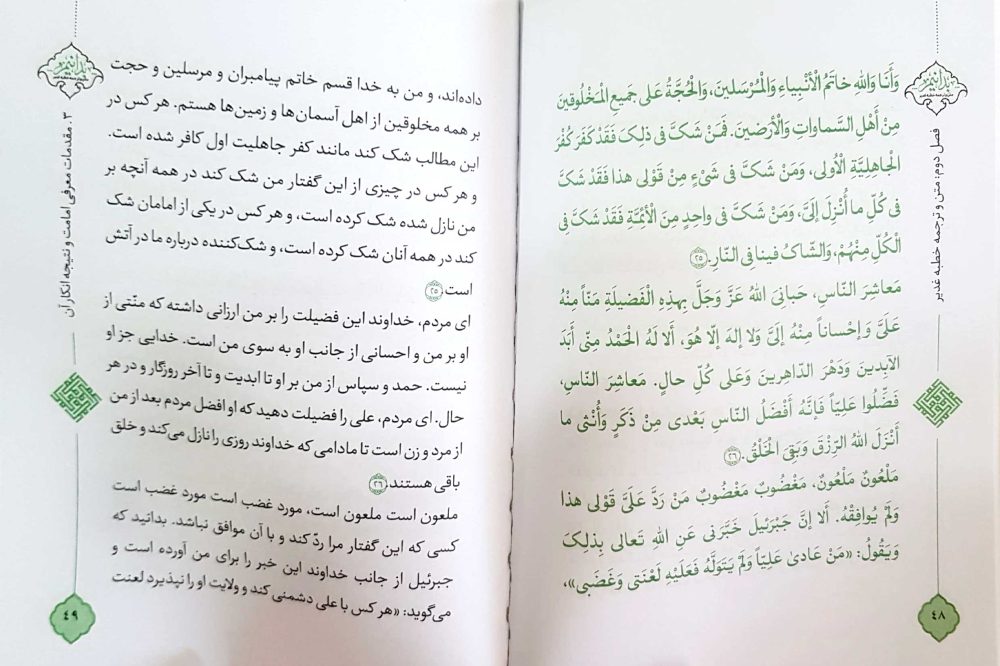 فصل دوم: متن و ترجمه خطبه غدیر
وَأَنَا وَاللهِ خاتَمُ الْأَنْبِیاءِ وَالْمُرْسَلینَ، وَالْحُجَّةُ عَلی جَمیعِ الْمَخْلُوقینَ
مِنْ أَهْلِ السَّماواتِ وَالْأَرَضینَ. فَمَنْ شَکَّ فی ذلِکَ فَقَدْ کَفَرَ کُفْرَ
الْجاهِلِیَّةِ الْأُولی، وَمَنْ شَکَّ فی شَیْءٍ مِنْ قَوْلی هذا فَقَدْ شَکَّ
فی کُلِّ ما أُنْزِلَ إِلَیَّ، وَمَنْ شَکَّ فی واحِدٍ مِنَ الْأَئِمَّةِ فَقَدْ شَکَّ فِی
الْکُلِّ مِنْهُمْ، وَالشّاکُّ فینا فِی النّارِ. ۲۵
مَعاشِرَ النّاسِ، حَبانِیَ اللهُ عَزَّ وَجَلَّ بِهذِهِ الْفَضیلَةِ مَنّاً مِنْهُ
عَلَیَّ وَإِحْساناً مِنْهُ إِلَیَّ وَلا إِلهَ إِلّا هُوَ، أَلا لَهُ الْحَمْدُ مِنّی أَبَدَ
الْآبِدینَ وَدَهْرَ الدّاهِرینَ وَعَلی کُلِّ حالٍ. مَعاشِرَ النّاسِ،
فَضِّلُوا عَلِیّاً فَإِنَّهُ أَفْضَلُ النّاسِ بَعْدی مِنْ ذَکَرٍ وَأُنْثی ما
أَنْزَلَ اللهُ الرِّزْقَ وَبَقِیَ الْخَلْقُ. ۲۶
مَلْعُونٌ مَلْعُونٌ، مَغْضُوبٌ مَغْضُوبٌ مَنْ رَدَّ عَلَیَّ قَوْلی هذا
وَلَمْ یُوافِقْهُ. أَلا إِنَّ جَبْرَئیلَ خَبَّرَنی عَنِ اللهِ تَعالی بِذلِکَ
وَیَقُولُ: «مَنْ عادی عَلِیّاً وَلَمْ یَتَوَلَّهُ فَعَلَیْهِ لَعْنَتی وَغَضَبی»،
۴۸
۳. مقدمات معرفی امامت و نتیجه انکار آن
داده‌اند، و من به خدا قسم خاتم پیامبران و مرسلین و حجت
بر همه مخلوقین از اهل آسمان‌ها و زمین‌ها هستم. هر کس در
این مطالب شک کند مانند کفر جاهلیت اول کافر شده است.
و هر کس در چیزی از این گفتار من شک کند در همه آنچه بر
من نازل شده شک کرده است، و هر کس در یکی از امامان شک
کند در همه آنان شک کرده است، و شک‌کننده درباره ما در آتش
است. ۲۵
ای مردم، خداوند این فضیلت را بر من ارزانی داشته که منّتی از
او بر من و احسانی از جانب او به سوی من است. خدایی جز او
نیست. حمد و سپاس از من بر او تا ابدیت و تا آخر روزگار و در هر
حال. ای مردم، علی را فضیلت دهید که او افضل مردم بعد از من
از مرد و زن است تا مادامی که خداوند روزی را نازل می‌کند و خلق
باقی هستند. ۲۶
ملعون است ملعون است، مورد غضب است مورد غضب است
کسی که این گفتار مرا ردّ کند و با آن موافق نباشد. بدانید که
جبرئیل از جانب خداوند این خبر را برای من آورده است و
می‌گوید: «هر کس با علی دشمنی کند و ولایت او را نپذیرد لعنت
۴۹